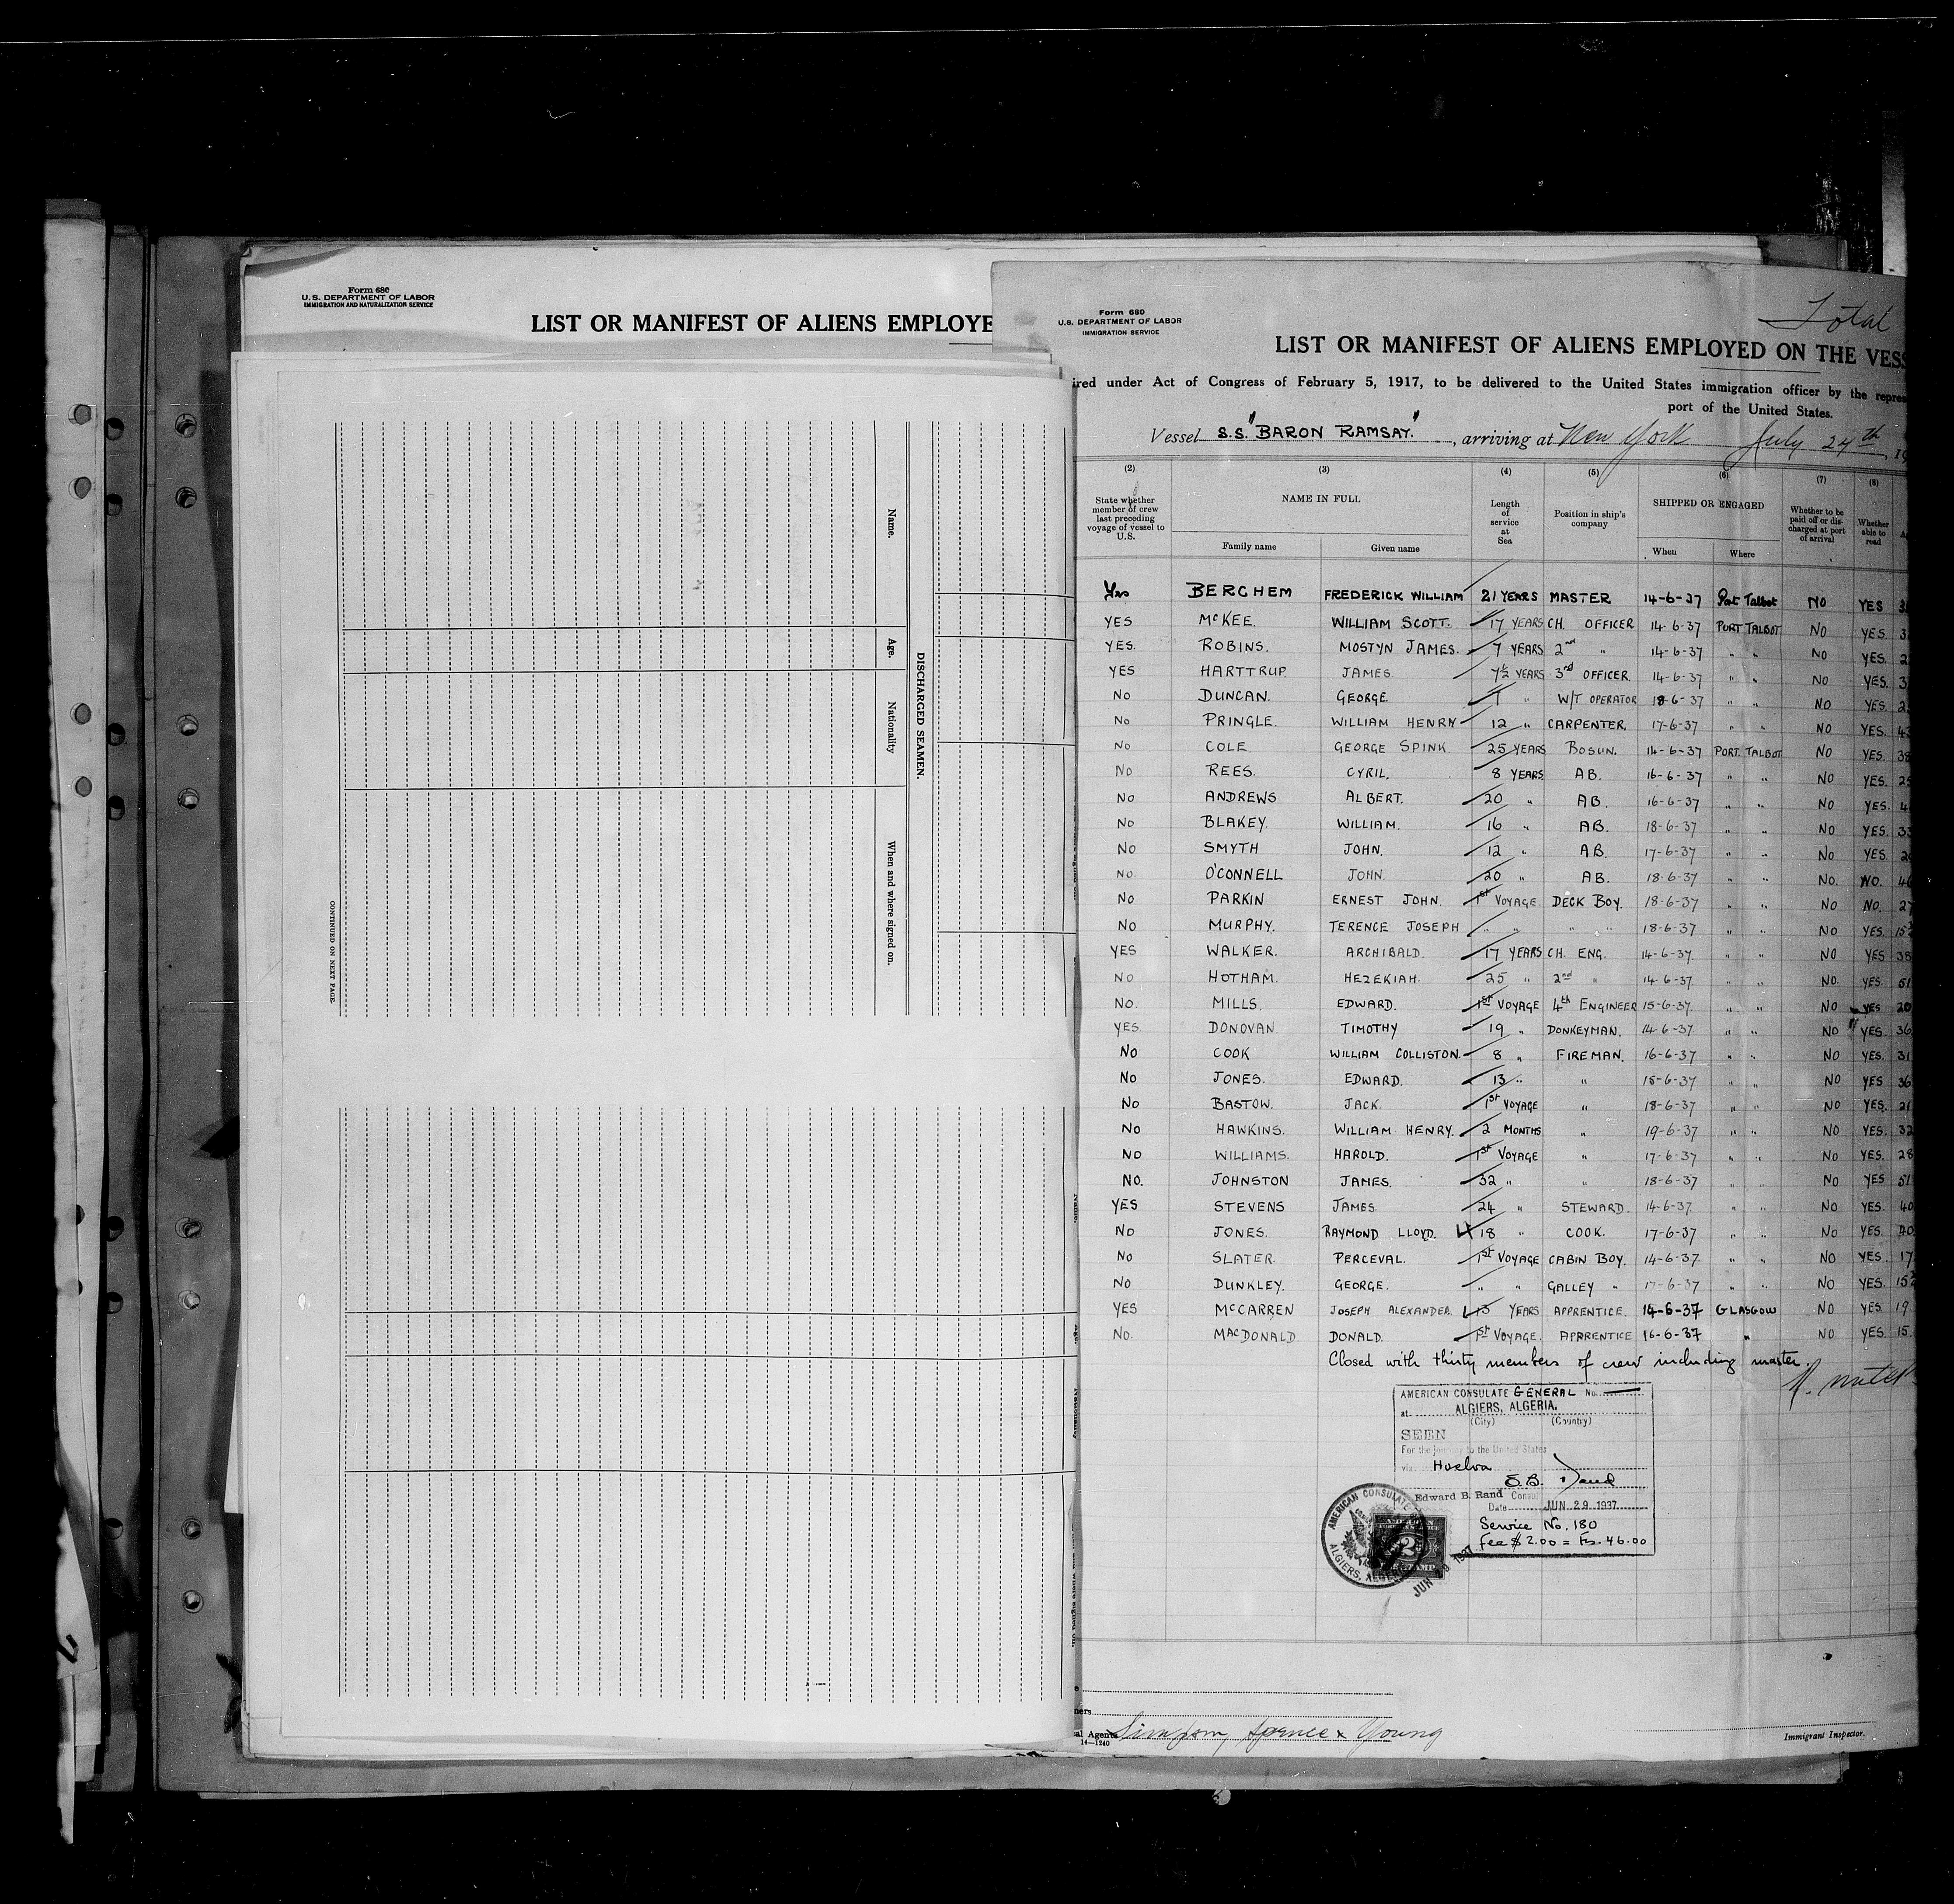 Form 680
U.S. DEPARTMENT OF LABOR
IMMIGRATION AND NATURALIZATION SERVICE
LIST OR MANIFEST OF ALIENS EMPLOYE
Name.
Age.
Nationality
When and where signed on.
DISCHARGED SEAMEN.
CONTINUED ON NEXT PAGE.
Total
Form 680
U.S. DEPARTMENT OF LABOR
IMMIGRATION SERVICE
LIST OR MANIFEST OF ALIENS EMPLOYED ON THE VESS
ired under Act of Congress of February 5, 1917, to be delivered to the United States immigration officer by the repres
port of the United States.
Vessel S.S. "BARON RAMSAY." , arriving at New York July 24th , 19
(2) (3) (4) (5) (6) (7) (8)
State whether member of crew last preceding voyage of vessel to U.S. NAME IN FULL Length of service at Sea Position in ship's company SHIPPED OR ENGAGED Whether to be paid off or discharged at port of arrival Whether able to read
Family name Given name When Where
Yes BERCHEM FREDERICK WILLIAM 21 YEARS MASTER 14-6-37 Port Talbot NO YES 3
YES McKEE. WILLIAM SCOTT. 17 YEARS CH. OFFICER 14-6-37 PORT TALBOT NO YES. 3
YES. ROBINS. MOSTYN JAMES. 7 YEARS 2nd " 14-6-37 " " NO YES. 2
YES HARTTRUP JAMES. 7½ YEARS 3rd OFFICER 14-6-37 " " NO YES. 3
NO DUNCAN. GEORGE. 1 " W/T OPERATOR 18-6-37 " " NO YES. 2
No PRINGLE. WILLIAM HENRY 12 " CARPENTER. 17-6-37 " " NO YES. 43
NO COLE GEORGE SPINK. 25 YEARS BOSUN. 14-6-37 PORT. TALBOT NO YES. 38
No REES. CYRIL. 8 YEARS AB. 16-6-37 " " NO YES. 25
No ANDREWS ALBERT. 20 " AB. 16-6-37 " " NO YES. 4
No BLAKEY. WILLIAM. 16 " AB. 18-6-37 " " NO YES. 33
No SMYTH JOHN. 12 " AB. 17-6-37 " " No YES. 2
NO. O'CONNELL JOHN. 20 " AB. 18-6-37 " " NO. NO. 46
No PARKIN ERNEST JOHN. 1st VOYAGE DECK BOY. 18-6-37 " " NO NO. 27
No MURPHY. TERENCE JOSEPH " " " " 18-6-37 " " NO YES. 15½
YES WALKER. ARCHIBALD. 17 YEARS CH. ENG. 14-6-37. " " NO YES 38
NO HOTHAM. HEZEKIAH. 25 " 2nd " 14-6-37. " " NO. YES. 51
NO. MILLS. EDWARD. 1st VOYAGE 4th ENGINEER 15-6-37. " " NO YES 20
YES. DONOVAN. TIMOTHY 19 " DONKEYMAN. 14-6-37. " " NO YES. 36
No COOK WILLIAM COLLISTON. 8 " FIREMAN. 16-6-37 " " NO YES. 31
No JONES. EDWARD. 13 " " 15-6-37 " " NO YES 36
No BASTOW. JACK. 1st VOYAGE " 18-6-37 " " NO YES. 21
No HAWKINS. WILLIAM HENRY. 2 MONTHS " 19-6-37 " " NO YES. 32
NO WILLIAMS. HAROLD. 1st VOYAGE " 17-6-37 " " NO YES. 28
NO. JOHNSTON JAMES. 32 " " 18-6-37 " " NO YES 51
YES STEVENS JAMES. 24 " STEWARD. 14-6-37 " " NO YES. 40
No JONES. RAYMOND LLOYD. 18 " COOK. 17-6-37 " " NO YES. 40
No SLATER. PERCEVAL. 1st VOYAGE CABIN BOY. 14-6-37. " " NO YES. 17
NO DUNKLEY. GEORGE. " " GALLEY " 17-6-37 " " NO YES. 15½
YES McCARREN JOSEPH ALEXANDER. YEARS APPRENTICE. 14-6-37 GLASGOW NO YES 19.
No. MACDONALD DONALD. 1st VOYAGE. APPRENTICE 16-6-37 " NO YES. 15.
Closed with thirty members of crew including master.
AMERICAN CONSULATE GENERAL No.
at ALGIERS, ALGERIA.
(City) (Country)
SEEN
For the journey to the United States
via Huelva
E.B. Rand
Edward B. Rand Consul
Date JUN 29 1937
Service No. 180
Fee $ 2.00 = Frs. 46.00
AMERICAN CONSULATE
ALGIERS, ALGERIA
JUN 29 1937
al Agents Simpson, Spence & Young
14—1240
Immigrant Inspector.